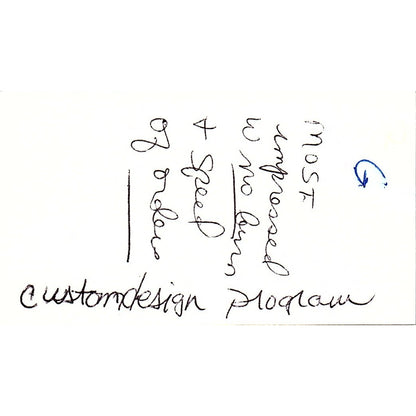 MOST
impressed
w no
+ speed
of orders
customdesign program